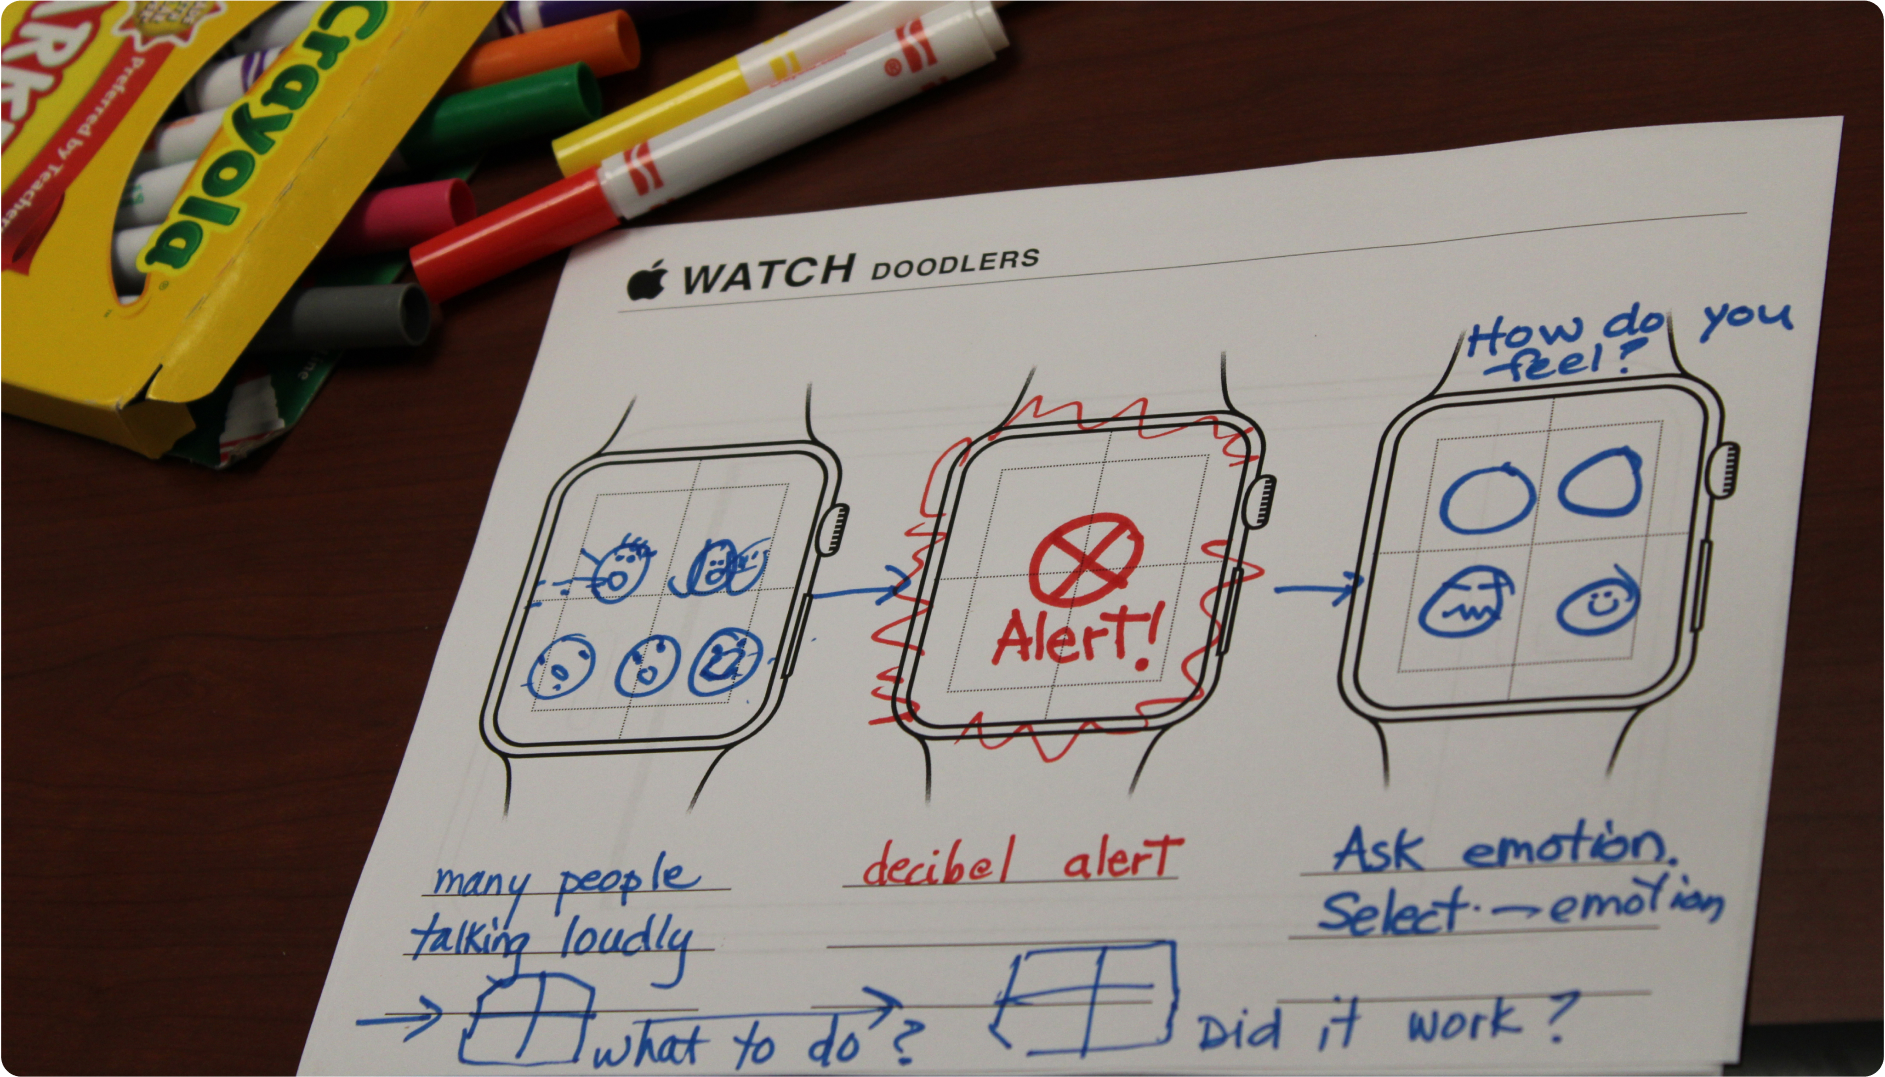 Crayola
Preferred by Teachers
WATCH DOODLERS
How do you
feel?
Alert!
many people
talking loudly
decibel alert
Ask emotion.
Select → emotion
→ what to do → ?
Did it work?